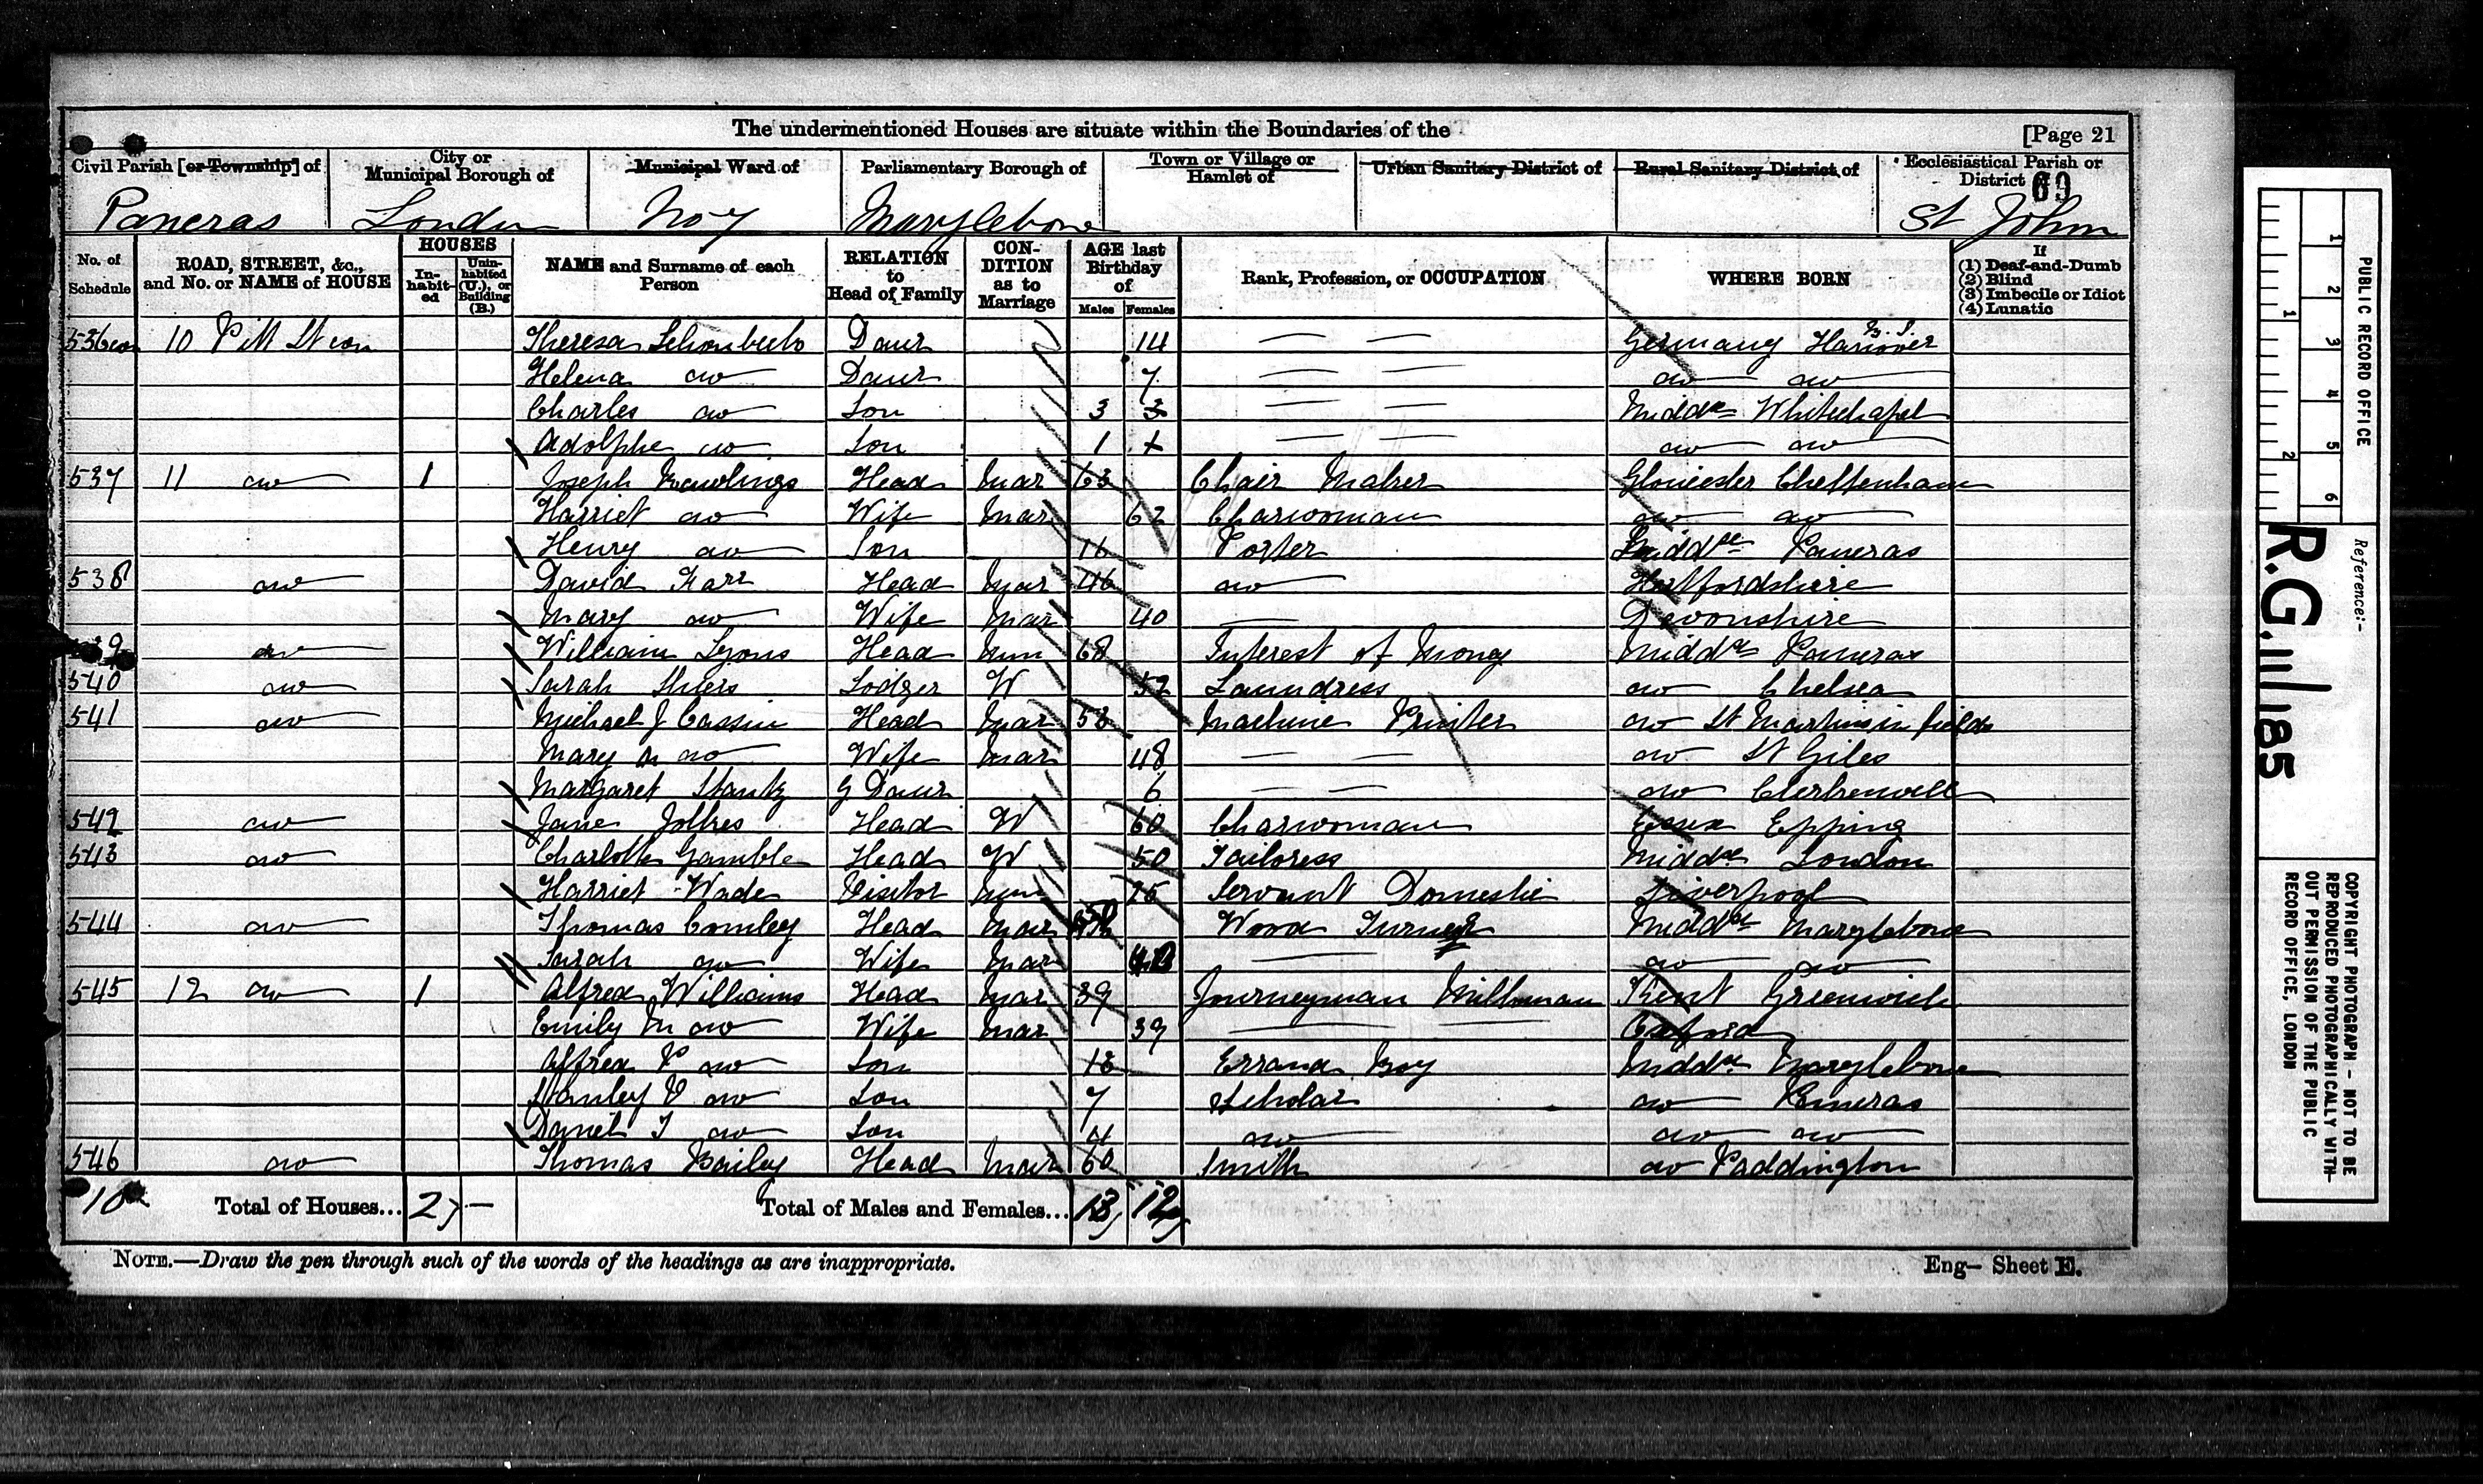 The undermentioned Houses are situate within the Boundaries of the [Page 21
Civil Parish [or Township] of
City or Municipal Borough of
Municipal Ward of
Parliamentary Borough of
Town or Village or Hamlet of
Urban Sanitary District of
Rural Sanitary District of
Ecclesiastical Parish or District of
69
Pancras London No 7 Marylebone St John
No. of Schedule
ROAD, STREET, &c., and No. or NAME of HOUSE
HOUSES
In-habit-ed
Unin-habited (U.), or Building (B.)
NAME and Surname of each Person
RELATION to Head of Family
CON-DITION as to Marriage
AGE last Birthday of
Males Females
Rank, Profession, or OCCUPATION
WHERE BORN
If
(1) Deaf-and-Dumb
(2) Blind
(3) Imbecile or Idiot
(4) Lunatic
536 con 10 Pitt St con Theresa Daur 14 — — Germany Hanover
Helena do Daur 7 — — do do
Charles do Son 3 3 — — Middx Whitechapel
Adolphe do Son 1 — — do do
537 11 do 1 Joseph Head Mar 63 Chair Maker Gloucester Cheltenham
Harriet do Wife Mar 62 Charwoman do do
Henry do Son 16 Porter Middx Pancras
538 do David Karr Head Mar 46 do Hertfordshire
Mary do Wife Mar 40 — Devonshire
39 do William Lyons Head Unm 68 Interest of Money Middx Pancras
540 do Sarah Lodger W 52 Laundress do Chelsea
541 do Michael J Cassin Head Mar 53 Machine Printer do St Martins in fields
Mary A do Wife Mar 48 — — do St Giles
Margaret G Daur 6 — — do Clerkenwell
542 do Jane Head W 60 Charwoman Essex Epping
543 do Charlotte Gamble Head W 50 Tailoress Middx London
Harriet Wade Visitor Unm 25 Servant Domestic Liverpool
544 do Thomas Comley Head Mar 50 Wood Turner Middx Marylebone
Sarah do Wife Mar — do do
545 12 do 1 Alfred Williams Head Mar 39 Journeyman Millman Kent Greenwich
Emily M do Wife Mar 39 — — Oxford
Alfred P do Son 13 Errand Boy Middx Marylebone
Stanley do Son 7 Scholar do Pancras
Daniel T do Son 4 do do do
546 do Thomas Bailey Head Mar 60 Smith do Paddington
10 Total of Houses... 2 — Total of Males and Females... 13 12
NOTE.—Draw the pen through such of the words of the headings as are inappropriate.
Eng— Sheet E.
1 2 3 4 5 6
1 2
PUBLIC RECORD OFFICE
Reference:-
R.G. 11/185
COPYRIGHT PHOTOGRAPH - NOT TO BE
REPRODUCED PHOTOGRAPHICALLY WITH-
OUT PERMISSION OF THE PUBLIC
RECORD OFFICE, LONDON